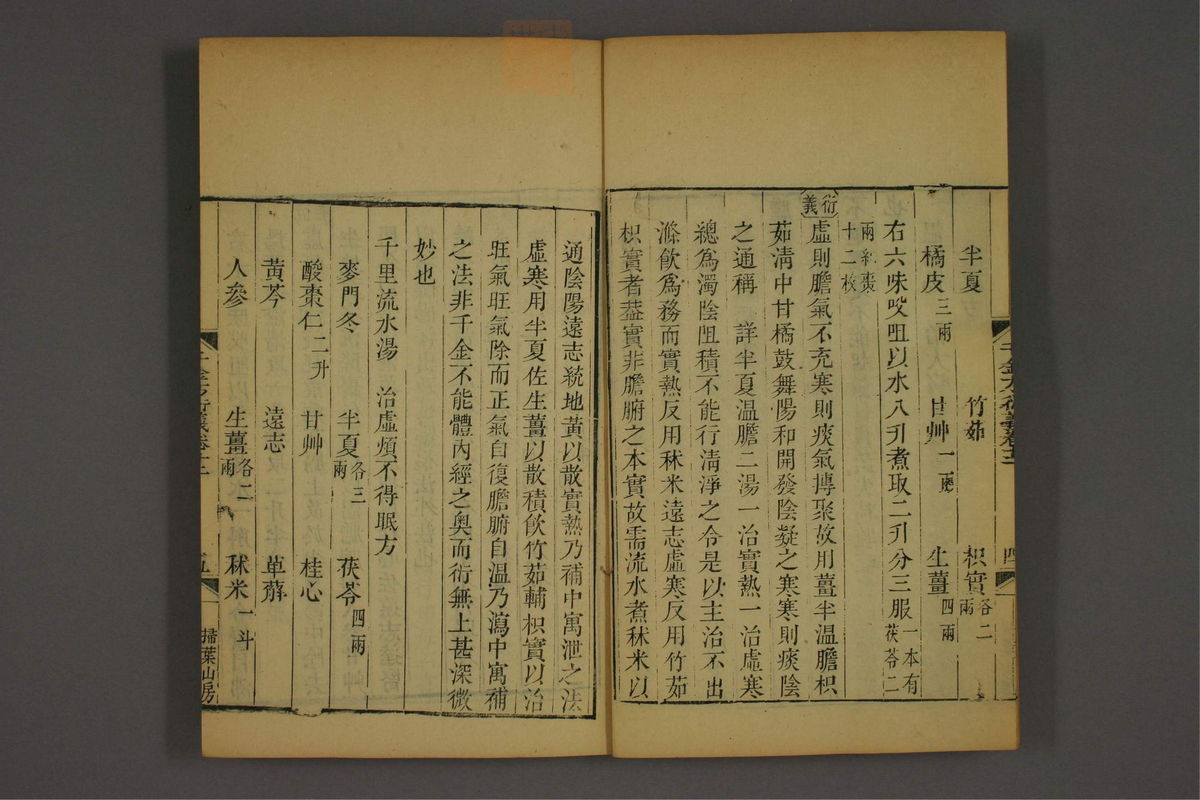 半夏 竹茹 枳實各二兩
橘皮三兩 甘艸一兩 生薑四兩
右六味㕮咀以水八升煮取二升分三服一本有茯苓二
兩紅棗十二枚
衍義 虛則膽氣不充寒則痰氣摶聚故用薑半溫膽枳
茹淸中甘橘鼓舞陽和開發陰凝之寒寒則痰陰
之通稱 詳半夏溫膽二湯一治實熱一治虛寒
總爲濁陰阻積不能行淸淨之令是以主治不出
滌飮爲務而實熱反用秫米遠志虛寒反用竹茹
枳實者葢實非膽腑之本實故需流水煮秫米以
千金方衍義卷
四
通陰陽遠志統地黃以散實熱乃補中寓泄之法
虛寒用半夏佐生薑以散積飮竹茹輔枳實以治
旺氣旺氣除而正氣自復膽腑自溫乃瀉中寓補
之法非千金不能體內經之奧而衍無上甚深微
妙也
千里流水湯 治虛煩不得眠方
麥門冬 半夏各三兩 茯苓四兩
酸棗仁二升 甘艸 桂心
黃芩 遠志 萆薢
人參 生薑各二兩 秫米一斗
五
掃葉山房